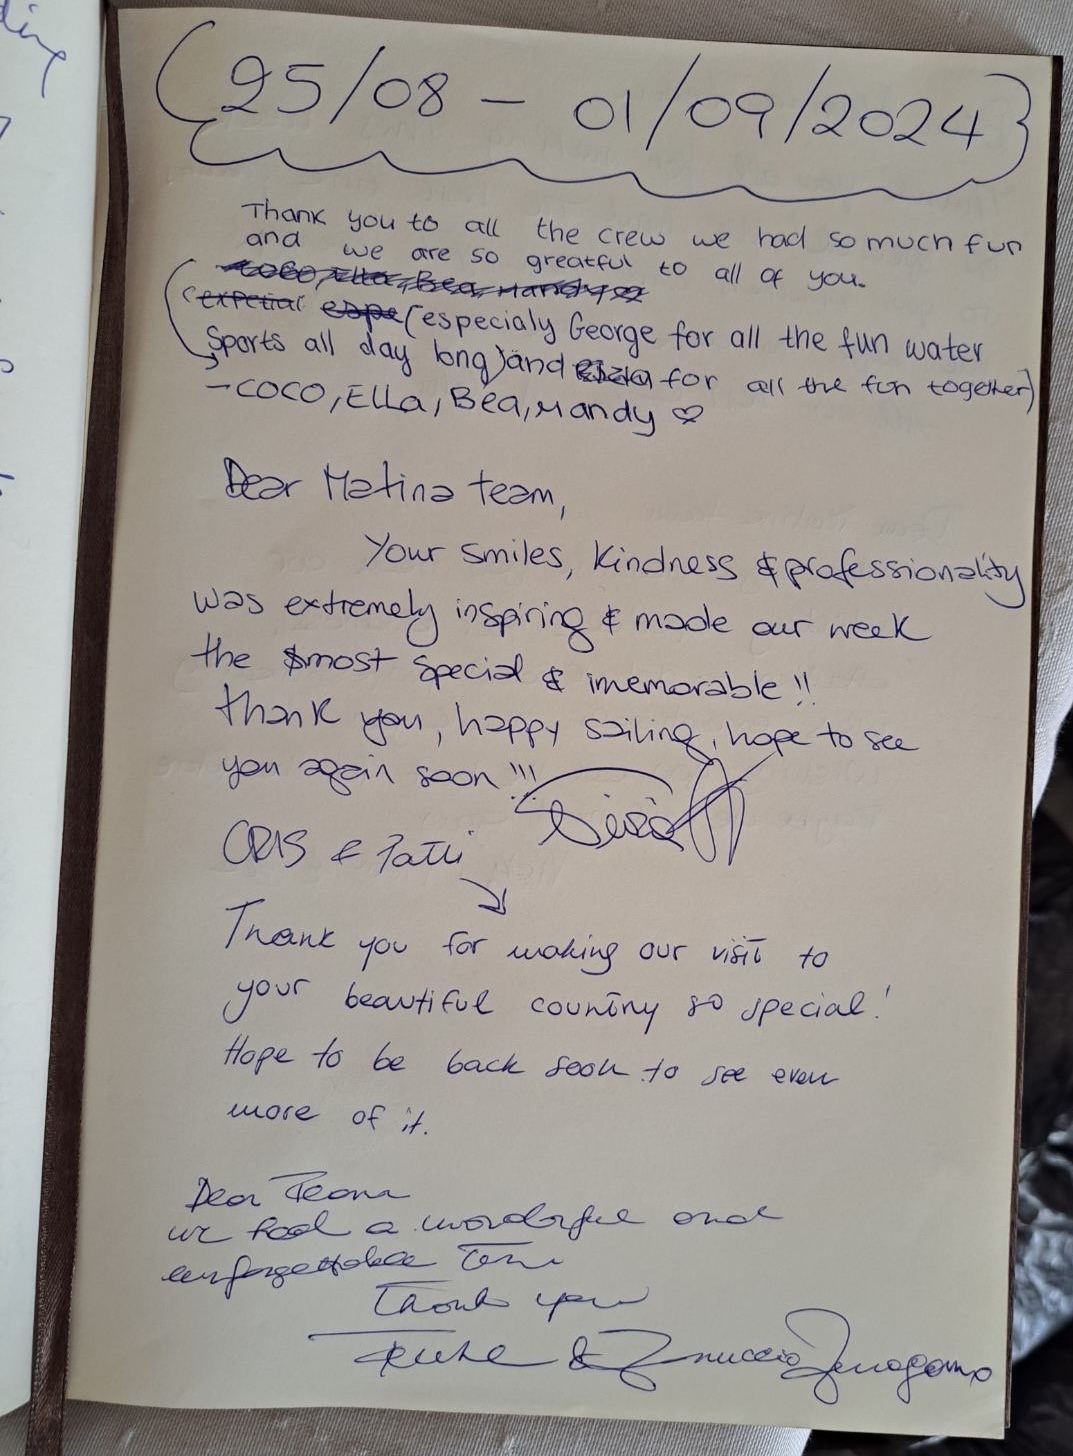 ding
(25/08 – 01/09/2024)
Thank you to all the crew we had so much fun
and we are so greatful to all of you.
COCO, Ella, Bea, Mandy
(expetial espe (especialy George for all the fun water
Sports all day long) and for all the fun together)
– COCO, Ella, Bea, Mandy ♡
Dear Matina team,
Your smiles, kindness & professionality
was extremely inspiring & made our week
the most special & memorable!!
Thank you, happy sailing, hope to see
you again soon!!!
CRIS & Patti
Thank you for making our visit to
your beautiful country so special!
Hope to be back soon to see even
more of it.
Dear Team
we had a wonderful and
unforgettable Time
Thank you
&